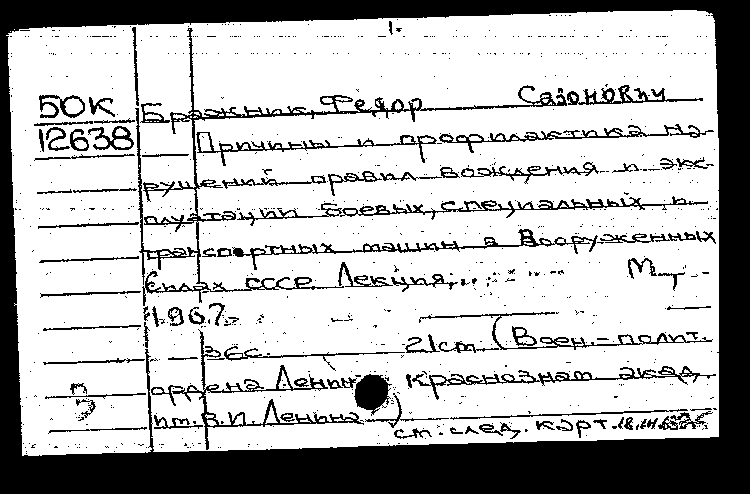 1.
БОК Бражник, Федор Сазонович
12638 Причины и профилактика на-
рушений правил вождения и экс-
плуатации боевых, специальных и
транспортных машин в Вооруженных
Силах СССР. Лекция... М.,
1967.
36с. 21см. (Воен.-полит.
ордена Ленина Краснознам. акад.
им. В.И. Ленина)
см. след. карт.